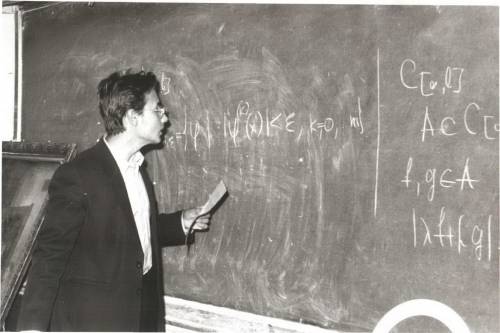 = {φ| |φ⁽ᵏ⁾(x)|<ε, k=0, m}
C[a,b]
A ⊂ C[a
f, g ∈ A
|λf+μg|